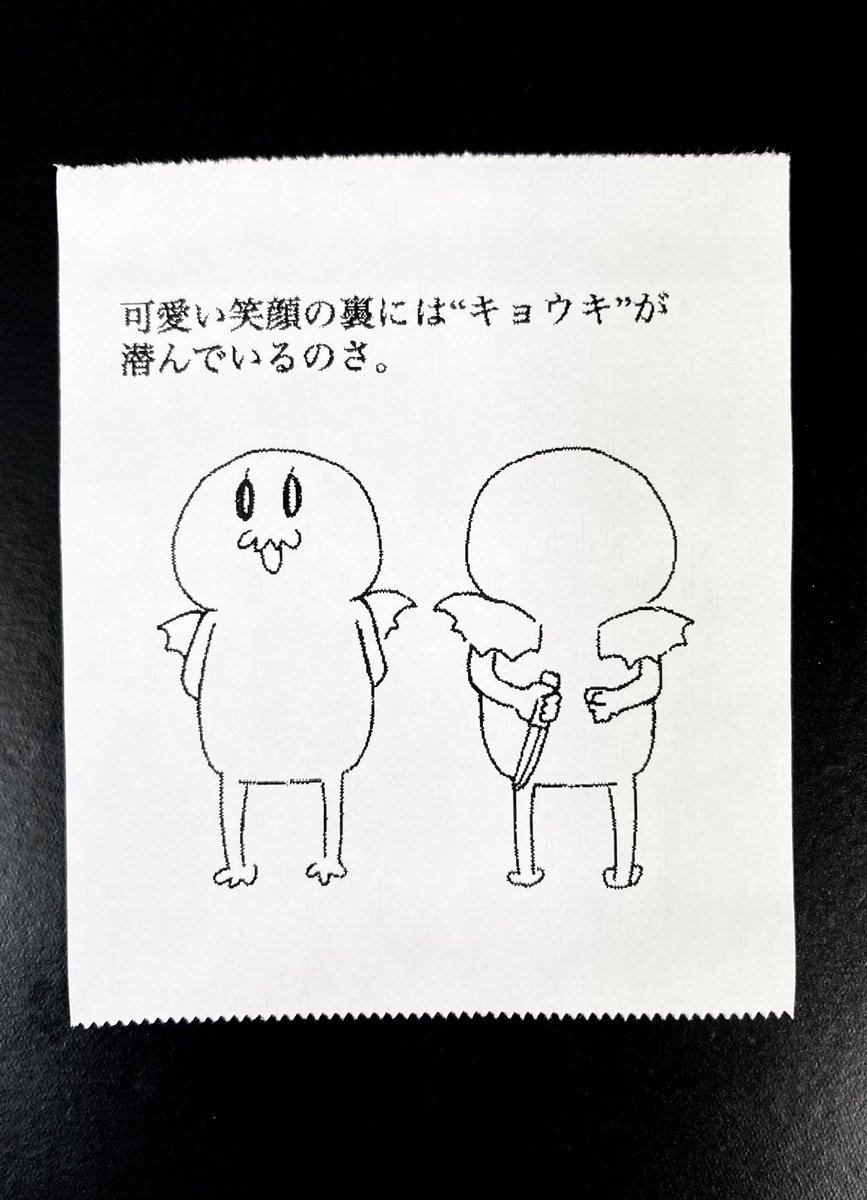 可愛い笑顔の裏には“キョウキ”が
潜んでいるのさ。